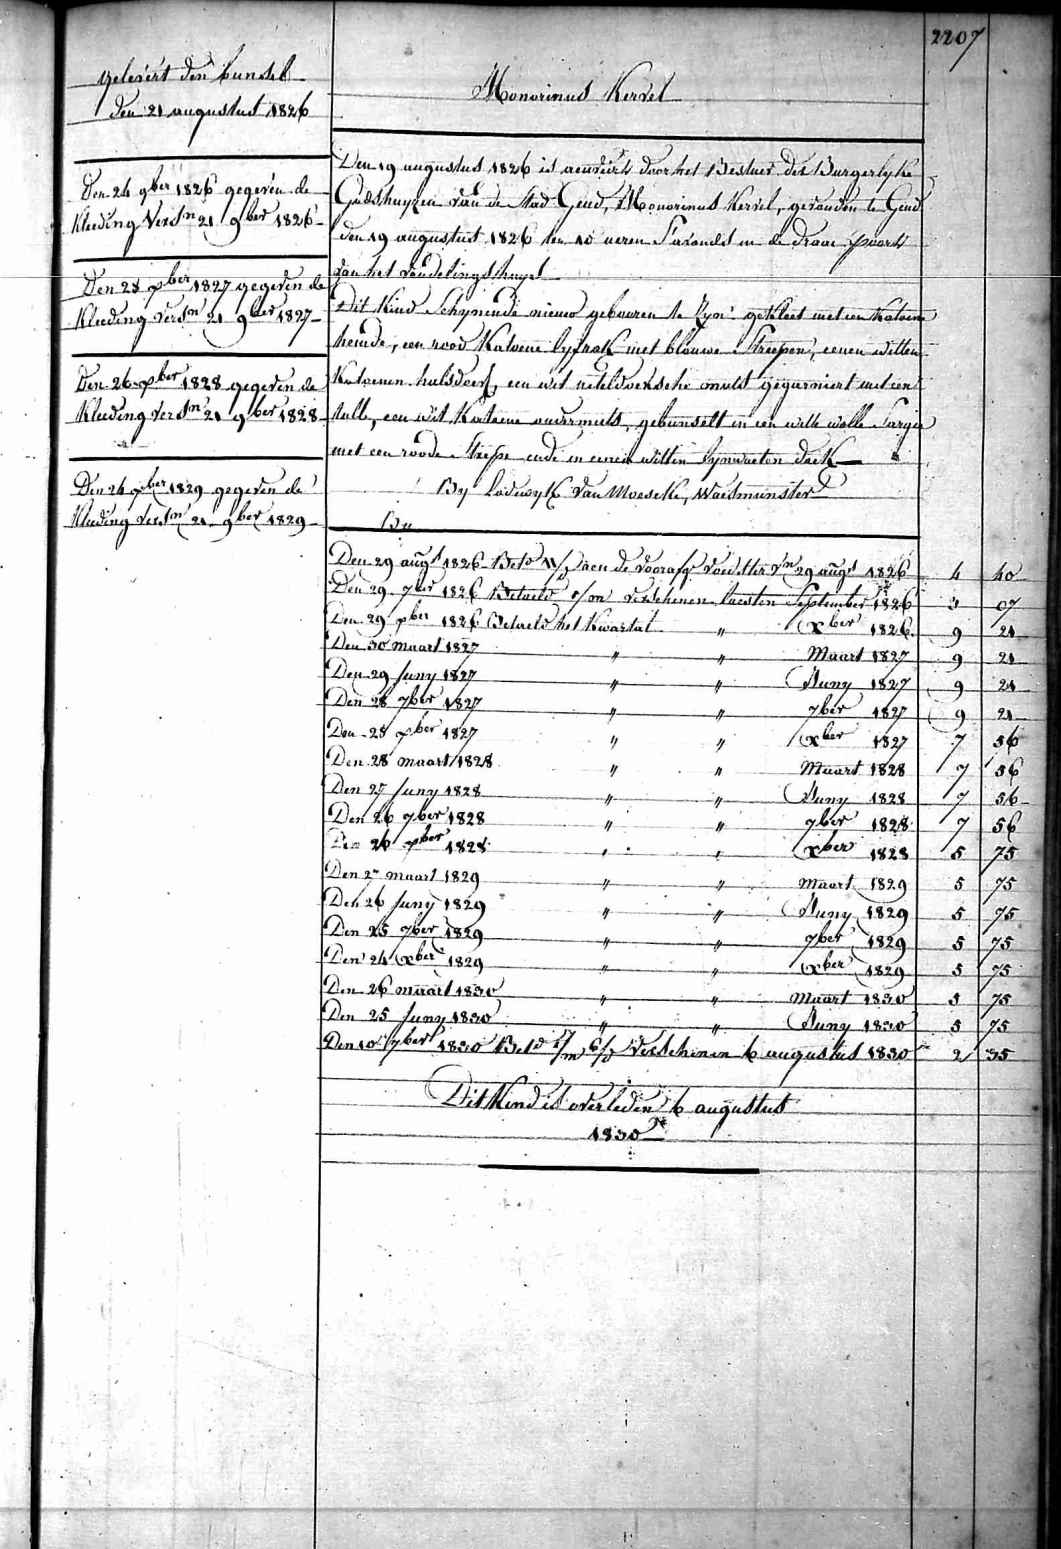 2207
gelevert den bunsel
den 21 augustus 1826
Den 24 9ber 1826 gegeven de
Kleeding Versn 21 9ber 1826
Den 23 xber 1827 gegeven de
Kleeding versn 21 9ber 1827
Den 26 xber 1828 gegeven de
Kleeding versn 21 9ber 1828
Den 24 xber 1829 gegeven de
Kleeding versn 21 9ber 1829
Monorinus Kervel
Den 19 augustus 1826 is aenveirt door het Bestuer der Burgerlyke
Godshuyzen van de Stad Gend, Monorinus Kervel, gevonden te Gend
den 19 augustus 1826 ten 10 ueren s'avonds in de draai poort
van het vondelingshuys
Dit Kind Schynende nieuw gebooren te Zyn: gekleet met een Katoene
hemde, een rood Katoene lyfrok met blauwe Streepen, eenen witten
Katoenen halsdoek, een wit neteldoeksche muts gegarniert met een
tulle, een wit Katoene ondermuts, gebunselt in een witte wolle Sargie
met een roode Strepe ende in eenen witten lynwaeten doek
By Lodewyk Van Moeseke, Waesmunster
Den 29 augt 1826 Betd aen de voorafg voedster vn 29 augt 1826 4 40
Den 29 7ber 1826 Betaeld verschenen laesten September 1826 3 07
Den 29 xber 1826 Betaeld het Kwartal " xber 1826 9 21
Den 30 maart 1827 " " Maart 1827 9 21
Den 29 Juny 1827 " " Juny 1827 9 21
Den 28 7ber 1827 " " 7ber 1827 9 21
Den 23 xber 1827 " " xber 1827 7 56
Den 28 maart 1828 " " Maart 1828 7 56
Den 27 Juny 1828 " " Juny 1828 7 56
Den 26 7ber 1828 " " 7ber 1828 7 56
Den 26 xber 1828 " " xber 1828 5 75
Den 27 maart 1829 " " Maart 1829 5 75
Den 26 Juny 1829 " " Juny 1829 5 75
Den 25 7ber 1829 " " 7ber 1829 5 75
Den 24 xber 1829 " " xber 1829 5 75
Den 26 maart 1830 " " Maart 1830 5 75
Den 25 Juny 1830 " " Juny 1830 5 75
Den 10 7ber 1830 Betd verschenen 6 augustus 1830 2 35
Dit Kind is overleden 6 augustus
1830